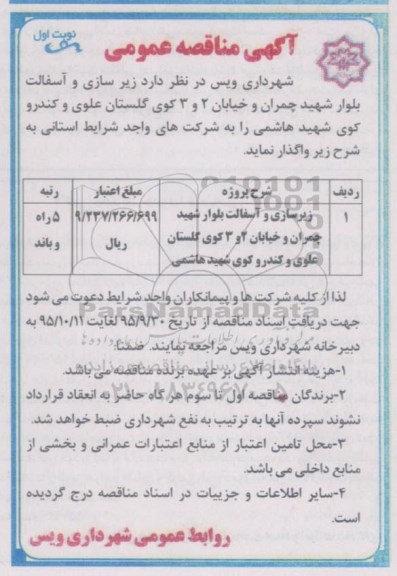 نوبت اول
آگهی مناقصه عمومی
شهرداری ویس در نظر دارد زیر سازی و آسفالت
بلوار شهید چمران و خیابان ۲ و ۳ کوی گلستان علوی و کندرو
کوی شهید هاشمی را به شرکت های واجد شرایط استانی به
شرح زیر واگذار نماید.
ردیف شرح پروژه مبلغ اعتبار رتبه
۱ زیرسازی و آسفالت بلوار شهید ۹/۲۳۷/۲۶۶/۶۹۹ ۵ راه
چمران و خیابان ۲و۳ کوی گلستان ریال و باند
علوی و کندرو کوی شهید هاشمی
لذا از کلیه شرکت ها و پیمانکاران واجد شرایط دعوت می شود
جهت دریافت اسناد مناقصه از تاریخ ۹۵/۹/۳۰ لغایت ۹۵/۱۰/۱۱ به
دبیرخانه شهرداری ویس مراجعه نمایند. ضمنا:
۱-هزینه انتشار آگهی بر عهده برنده مناقصه می باشد.
۲-برندگان مناقصه اول تا سوم هر گاه حاضر به انعقاد قرارداد
نشوند سپرده آنها به ترتیب به نفع شهرداری ضبط خواهد شد.
۳-محل تامین اعتبار از منابع اعتبارات عمرانی و بخشی از
منابع داخلی می باشد.
۴-سایر اطلاعات و جزییات در اسناد مناقصه درج گردیده
است.
روابط عمومی شهرداری ویس
ParsNamadData